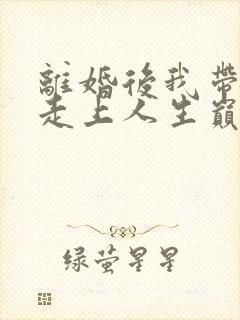 離婚後我帶
走上人生巔
绿萤星星